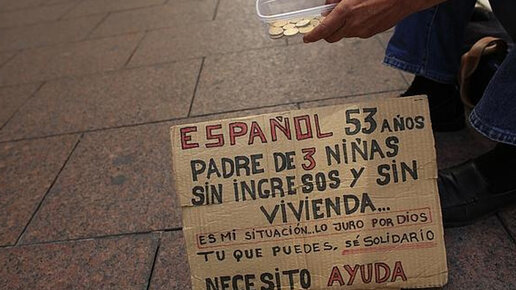 ESPAÑOL 53 AÑOS
PADRE DE 3 NIÑAS
SIN INGRESOS Y SIN
VIVIENDA...
ES MI SITUACIÓN...LO JURO POR DIOS
TU QUE PUEDES, SÉ SOLIDARIO
NECESITO AYUDA